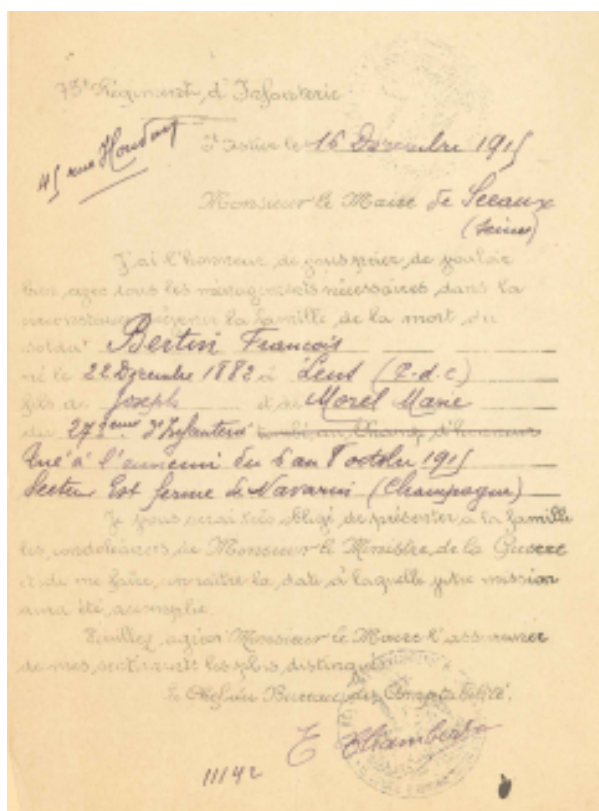 75e Régiment d'Infanterie
le 16 Décembre 1915
45 rue Houdan
Monsieur le Maire de Sceaux
(Seine)
J'ai l'honneur de vous prier de vouloir
bien, avec tous les ménagements nécessaires dans la
circonstance, prévenir la famille de la mort du
soldat Bertin François
né le 22 Décembre 1882 à Lens (P-d-C)
fils de Joseph et de Morel Marie
du 27 d'Infanterie tombé au Champ d'honneur
Tué à l'ennemi du 6 au 8 octobre 1915
Secteur Est ferme de Navarin (Champagne)
Je vous serai très obligé de présenter à la famille
les condoléances de Monsieur le Ministre de la Guerre
et de me faire connaître la date à laquelle votre mission
aura été accomplie.
Veuillez agréer Monsieur le Maire l'assurance
de mes sentiments les plus distingués.
le Chef du Bureau de Comptabilité.
11142